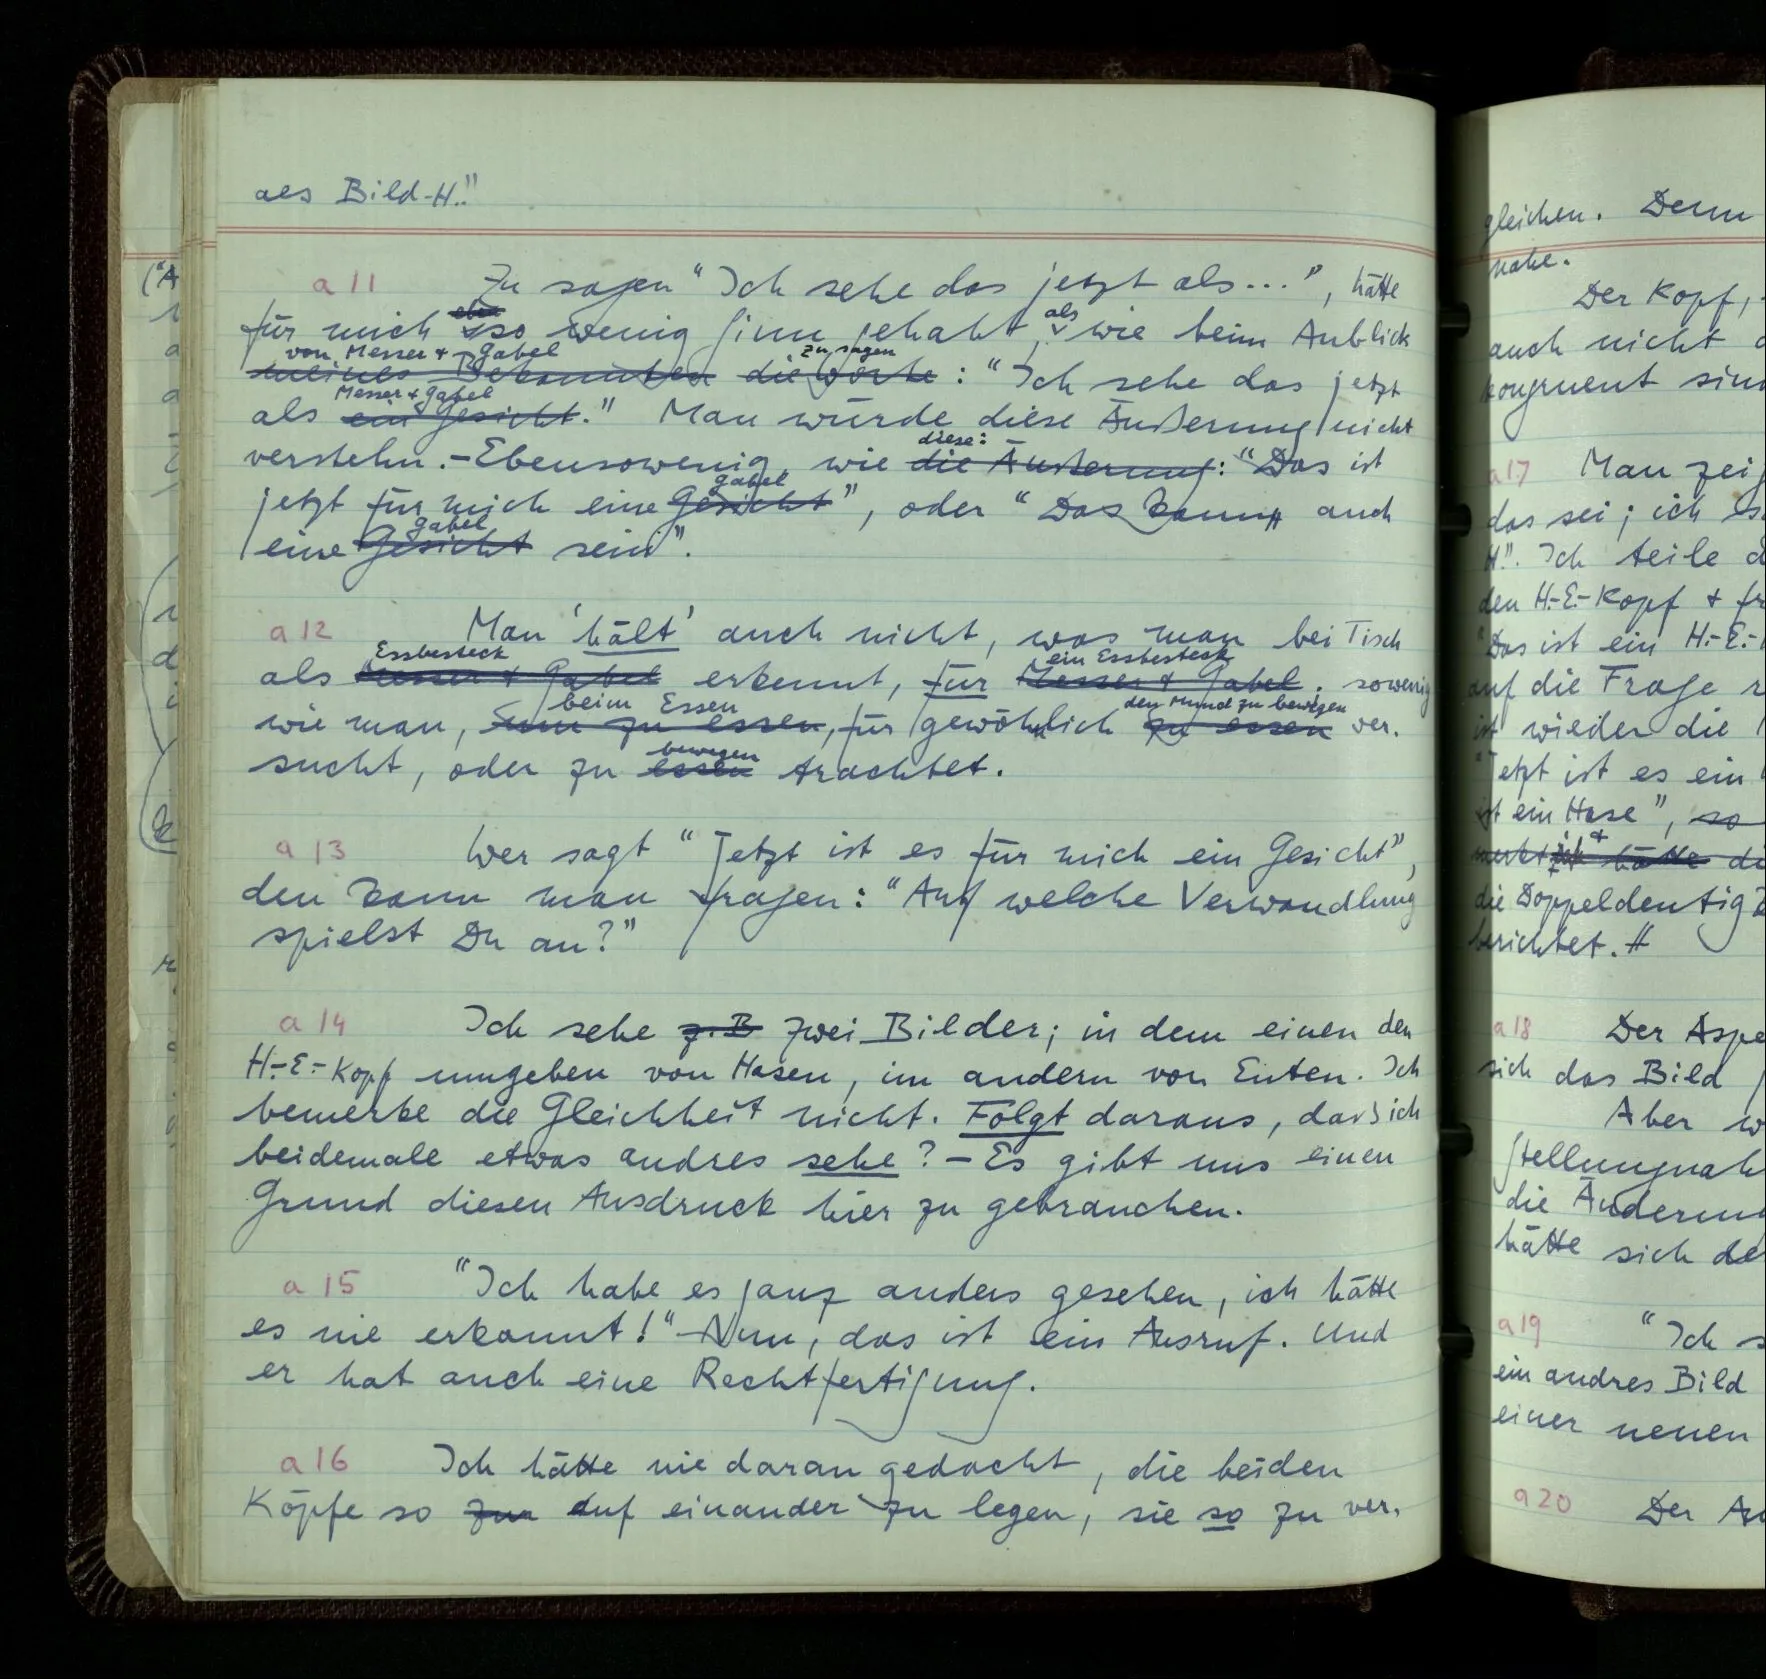 als Bild-H."
a 11 Zu sagen "Ich sehe das jetzt als...", hätte
eben als
für mich so wenig Sinn gehabt, wie beim Anblick
von Messer + Gabel zu sagen
meines Bekannten die Worte: "Ich sehe das jetzt
Messer + Gabel
als ein Gesicht." Man würde diese Äußerung nicht
diese:
verstehn. - Ebensowenig, wie die Äußerung: "Das ist
Gabel
jetzt für mich eine Gesicht", oder "Das kann auch
Gabel
eine Gesicht sein".
a 12 Man 'hält' auch nicht, was man bei Tisch
Essbesteck ein Essbesteck
als Messer + Gabel erkennt, für Messer + Gabel. sowenig
beim Essen den Mund zu bewegen
wie man, um zu essen, für gewöhnlich zu essen ver-
bewegen
sucht, oder zu essen trachtet.
a 13 Wer sagt "Jetzt ist es für mich ein Gesicht",
den kann man fragen: "Auf welche Verwandlung
spielst Du an?"
a 14 Ich sehe z.B zwei Bilder; in dem einen den
H.-E.-Kopf umgeben von Hasen, im andern von Enten. Ich
bemerke die Gleichheit nicht. Folgt daraus, daß ich
beidemale etwas andres sehe? - Es gibt uns einen
Grund diesen Ausdruck hier zu gebrauchen.
a 15 "Ich habe es ganz anders gesehen, ich hätte
es nie erkannt!" - Nun, das ist ein Ausruf. Und
er hat auch eine Rechtfertigung.
a 16 Ich hätte nie daran gedacht, die beiden
Köpfe so auf einander zu legen, sie so zu ver-
gleichen. Denn
nahe.
Der Kopf,
auch nicht
kongruent sind
a 17 Man zeig
das sei; ich
H." Ich teile
den H.-E.-Kopf +
"Das ist ein H.-E.-
auf die Frage
ist wieder die
"Jetzt ist es ein
ist ein Hase", so
merkt ich + hätte
die Doppeldeutigk
berichtet. #
a 18 Der Aspe
sich das Bild
Aber
Stellungnah
die Änderun
hätte sich
a 19 "Ich
ein andres Bild
einer neuen
a 20 Der